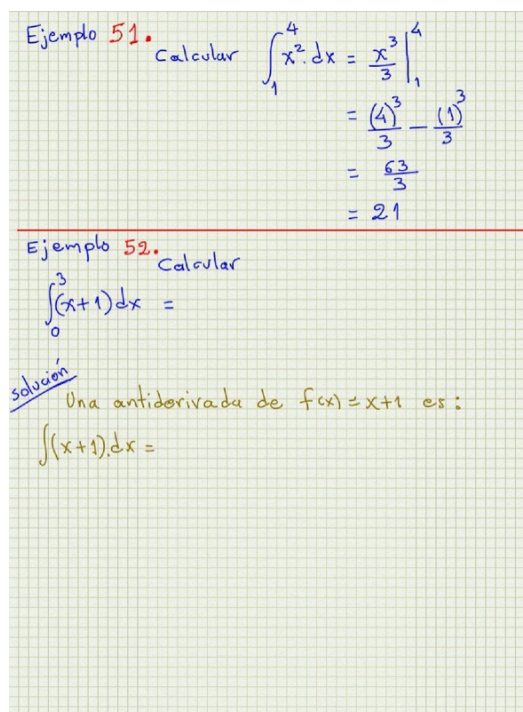 Ejemplo 51.
Calcular ∫₁⁴ x².dx = x³/3 |₁⁴
= (4)³/3 − (1)³/3
= 63/3
= 21
Ejemplo 52.
Calcular
∫₀³ (x+1)dx =
solución
Una antiderivada de f(x) = x+1 es:
∫(x+1).dx =